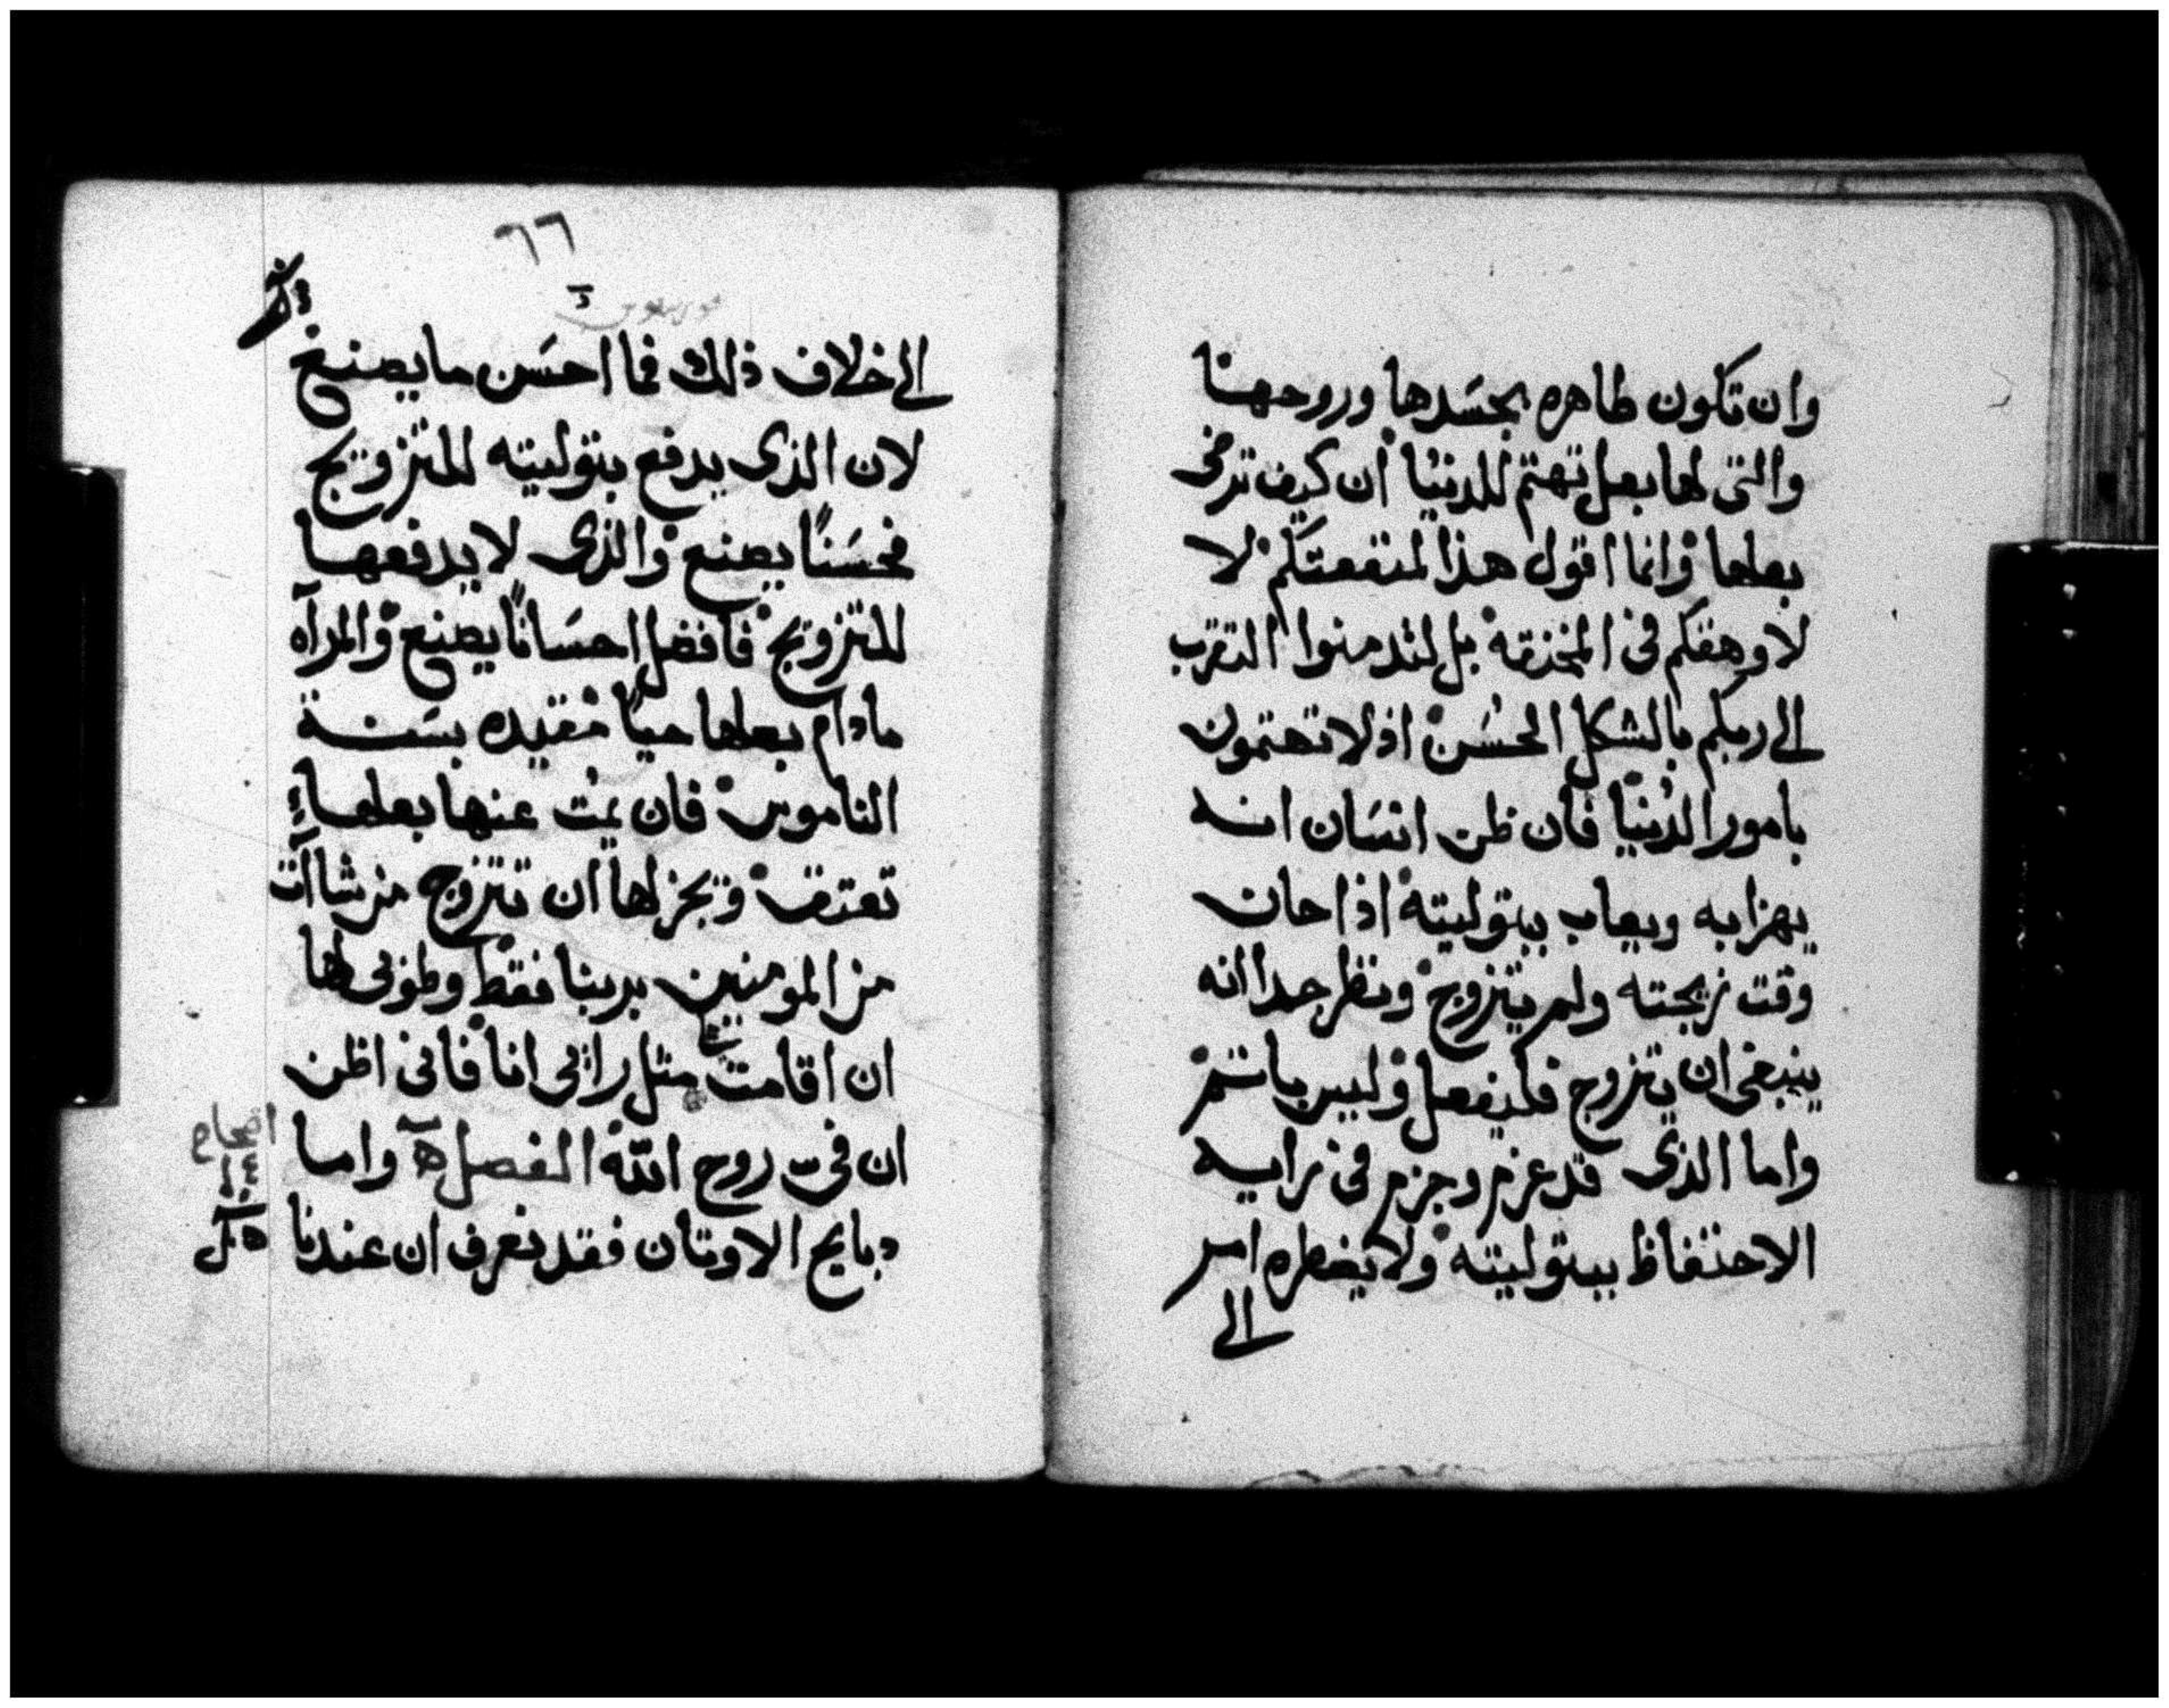 وان تكون طاهره بجسَدها وروحهنا
والتى لها بعل تهتم للدنيا ان كيف ترضى
بعلها وانما اقول هذا لمنفعتكم لا
لاوهقكم فى المخنقه بل لتدمنوا التقرب
الى ربكم بالشكل الحسَن اذ لا تهتمون
بامور الدُنيّا فان ظن انسَان انه
يهزا به ويعاب ببتوليته اذا حان
وقت زيجته ولم يتزوج ونظر جدا انه
ينبغى ان يتزوج فليفعل وليس باثم
واما الذى قد عزم وجزم فى رايه
الاحتفاظ ببتوليته ولا يضطره امر
الى
٦٦
الى خلاف ذلك فما احسَن ما يصنع
لان الذى يدفع بتوليته للتزويج
فحسَنًا يصنع والذى لا يدفعها
للتزويج فافضل احسَانًا يصنع والمرآه
مادام بعلها حيًا مقيده بسَنة
الناموس فان يمُت عنها بعلها
تعتق ويجز لها ان تتزوج من شاآت
من المومنين بربنا فقط وطوبى لها
ان اقامت مثل رائى انا فانى اظن
ان فيَّ روح الله الفصل ه واما
دبايح الاوتان فقد نعرف ان عندنا
اصحاح